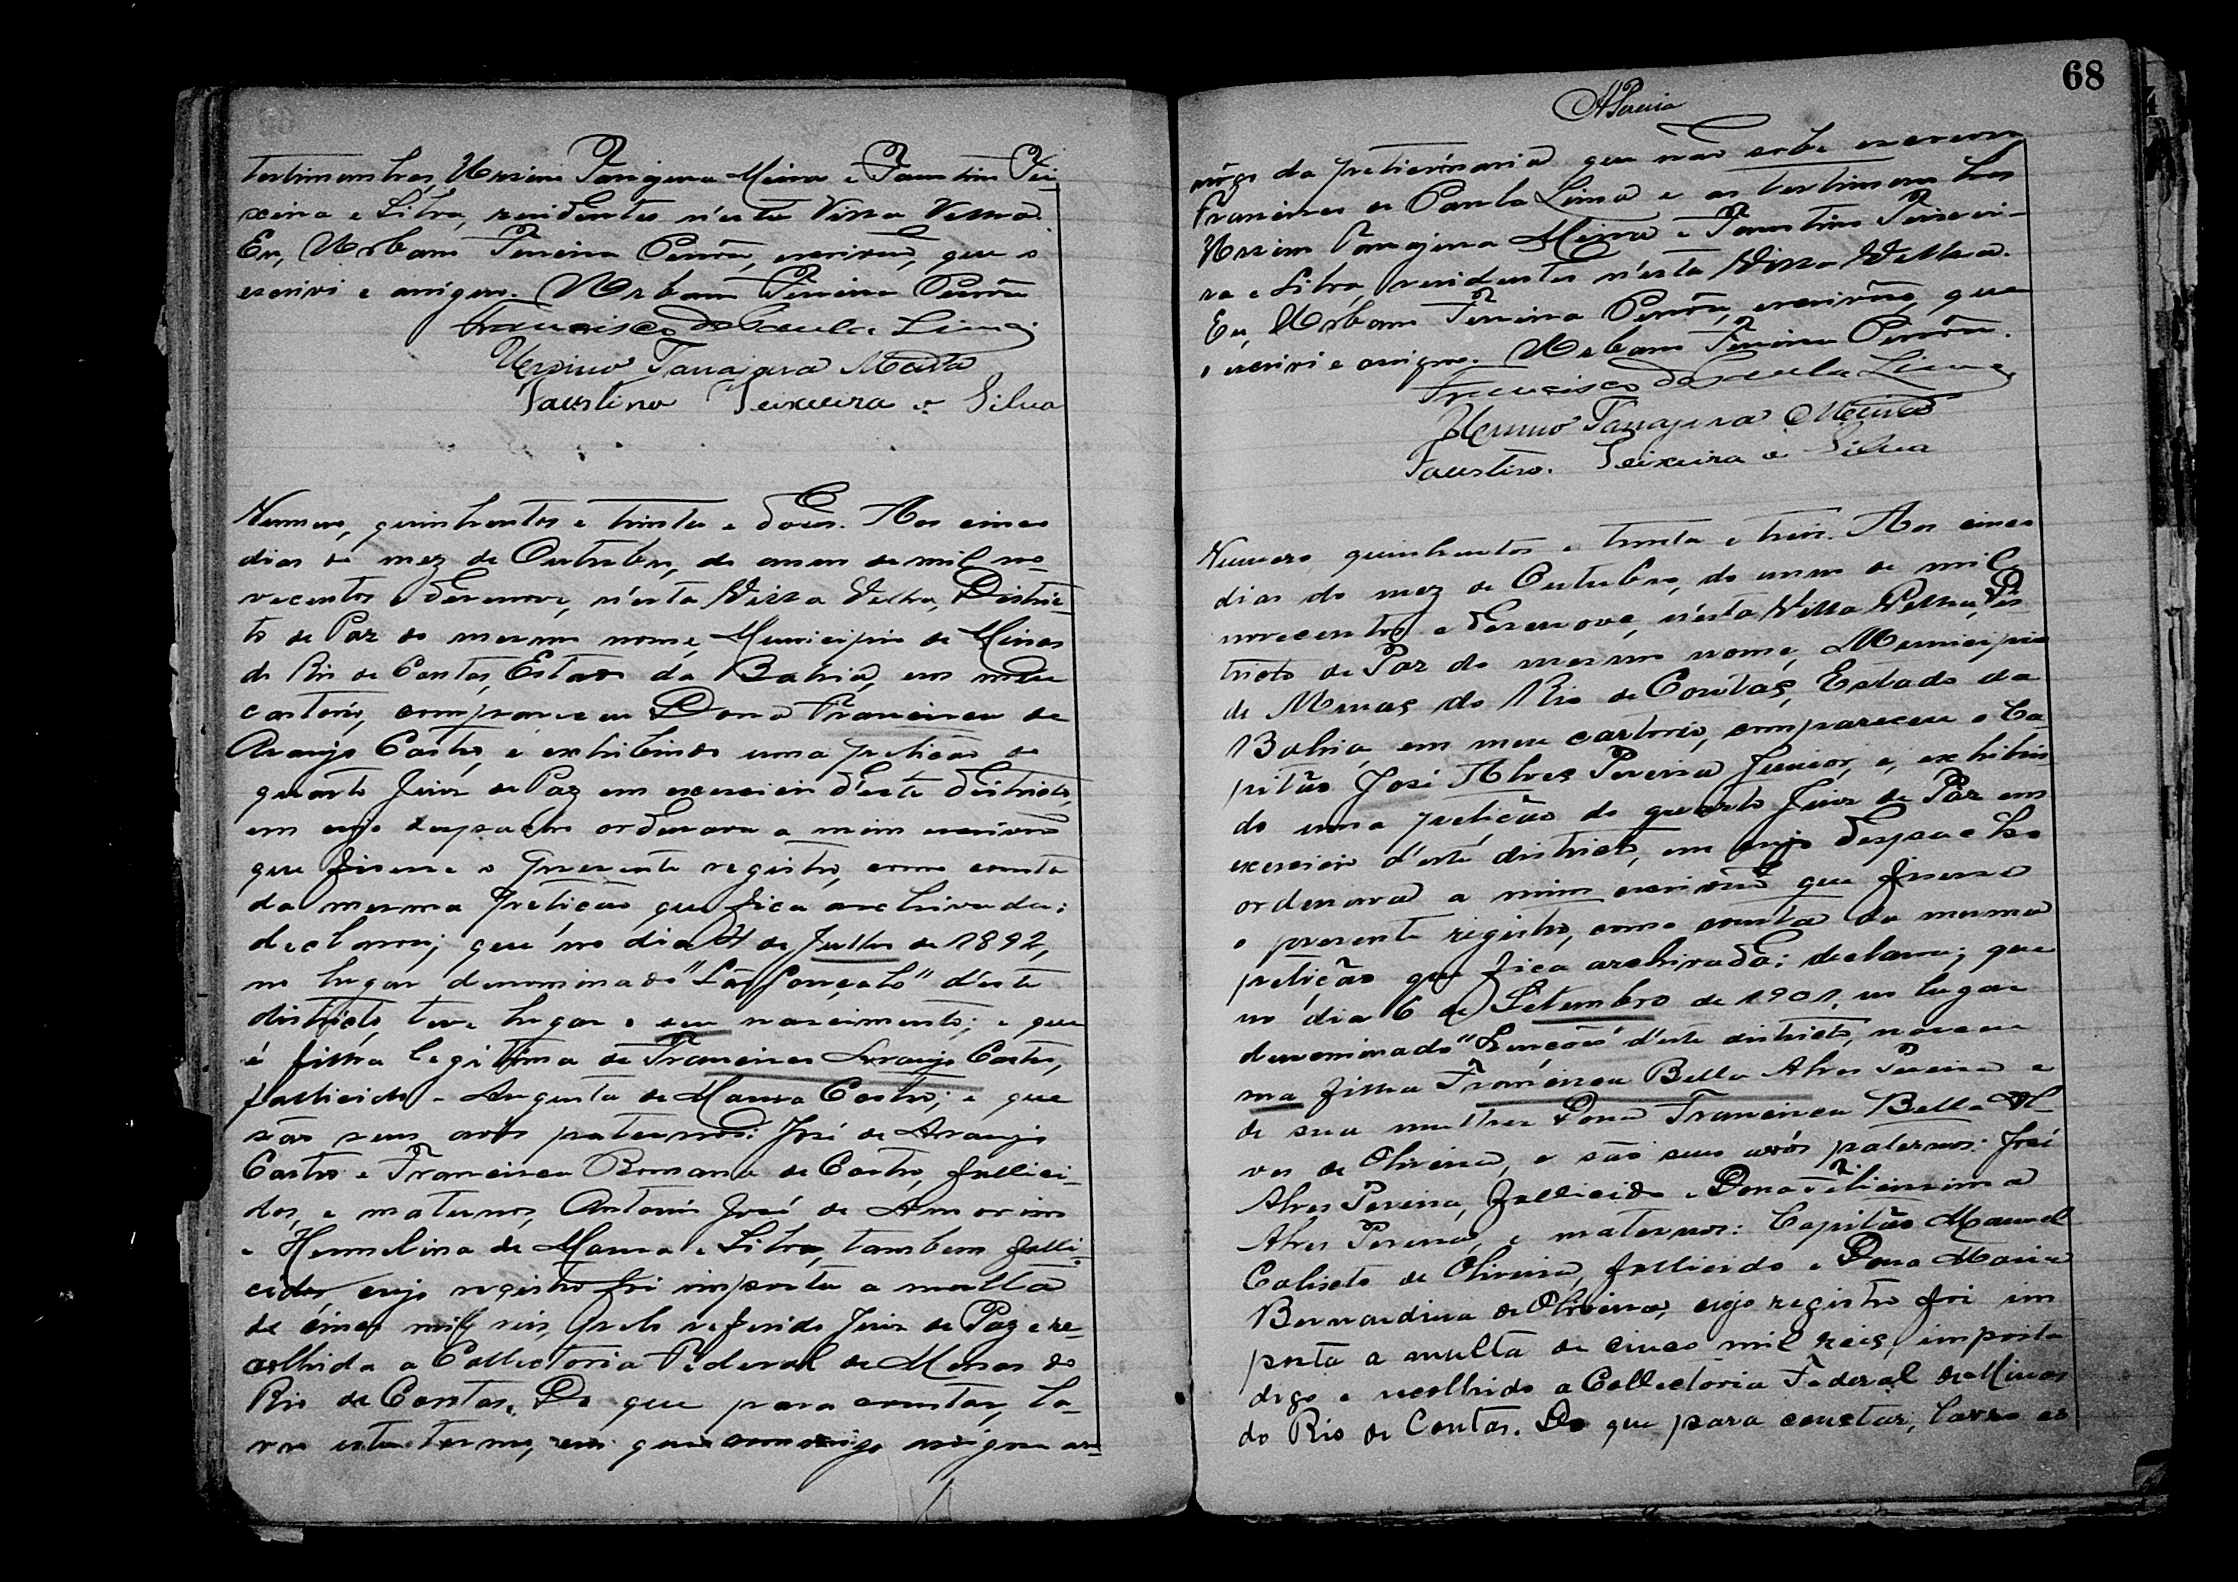 testimunhas, Ursino Tanajura Meira e Faustino Tei-
xeira e Silva, residentes n'esta Villa Velha.
Eu, Urbano Pereira Perôn, escrivão, que o
escrivi e assigno. Urbano Pereira Perôn
Francisco de Paula Lima
Ursino Tanajura Meira
Faustino Teixeira e Silva
Numero, quinhentos e trinta e dous. Aos cinco
dias do mez de Outubro, do anno de mil no-
vecentos e desenove, n'esta Villa Velha, Distric-
to de Paz do mesmo nome, Municipio de Minas
do Rio de Contas, Estado da Bahia, em meu
cartorio, compareceu Dona Francisca de
Araujo Castro, e exhibindo uma petição do
quarto Juiz de Paz em exercicio d'este districto,
em cujo despacho ordenava a mim escrivão
que fizesse o presente registro, como consta
da mesma petição que fica archivada:
declarou; que no dia 4 de Julho de 1892,
no lugar denominado "São Gonçalo" d'este
districto, teve lugar o seu nascimento; e que
é filha legitima de Francisco Araujo Castro,
fallecido e Augusta de Moura Castro; e que
são seus avós paternos: José de Araujo
Castro e Francisca Romana de Castro, falleci-
dos, e maternos, Antonio José de Amorim
e Hermelina de Moura e Silva, tambem falle-
cidos, cujo registro foi imposta a multa
de cinco mil reis, pelo referido Juiz de Paz e re-
colhida a Collectoria Federal de Minas do
Rio de Contas. Do que para constar, la-
vro este termo, em que commigo assigna a
68
APereira
rôgo da peticionaria que não sabe escrever
Francisco de Paula Lima e as testimunhas
Ursino Tanajura Meira e Faustino Teixei-
ra e Silva, residentes n'esta Villa Velha.
Eu, Urbano Pereira Perôn, escrivão, que
o escrivi e assigno. Urbano Pereira Perôn.
Francisco de Paula Lima
Ursino Tanajura Meira
Faustino Teixeira e Silva
Numero quinhentos e trinta e treis. Aos cinco
dias do mez de Outubro, do anno de mil
novecentos e desenove, n'esta Villa Velha, Dis
tricto de Paz do mesmo nome, Municipio
de Minas do Rio de Contas, Estado da
Bahia, em meu cartorio, compareceu o Ca
pitão José Alves Pereira Junior, e, exhibin
do uma petição do quarto Juiz de Paz em
exercicio d'este districto, em cujo despacho
ordenava a mim escrivão que fizesse
o presente registro, como consta da mesma
petição que fica archivada: declarou; que
no dia 6 de Setembro de 1901, no lugar
denominado d'este districto, nasceu
sua filha Francisca Bella Alves Pereira e
de sua mulher Dona Francisca Bella Al-
ves de Oliveira, e são seus avós paternos: José
Alves Pereira, fallecido e Dona Felicissima
Alves Pereira, e maternos: Capitão Manoel
Calixto de Oliveira, fallecido e Dona Maria
Bernardina de Oliveira, cujo registro foi im
posta a multa de cinco mil reis, imposta
digo e recolhida a Collectoria Federal de Minas
do Rio de Contas. Do que para constar, lavro es